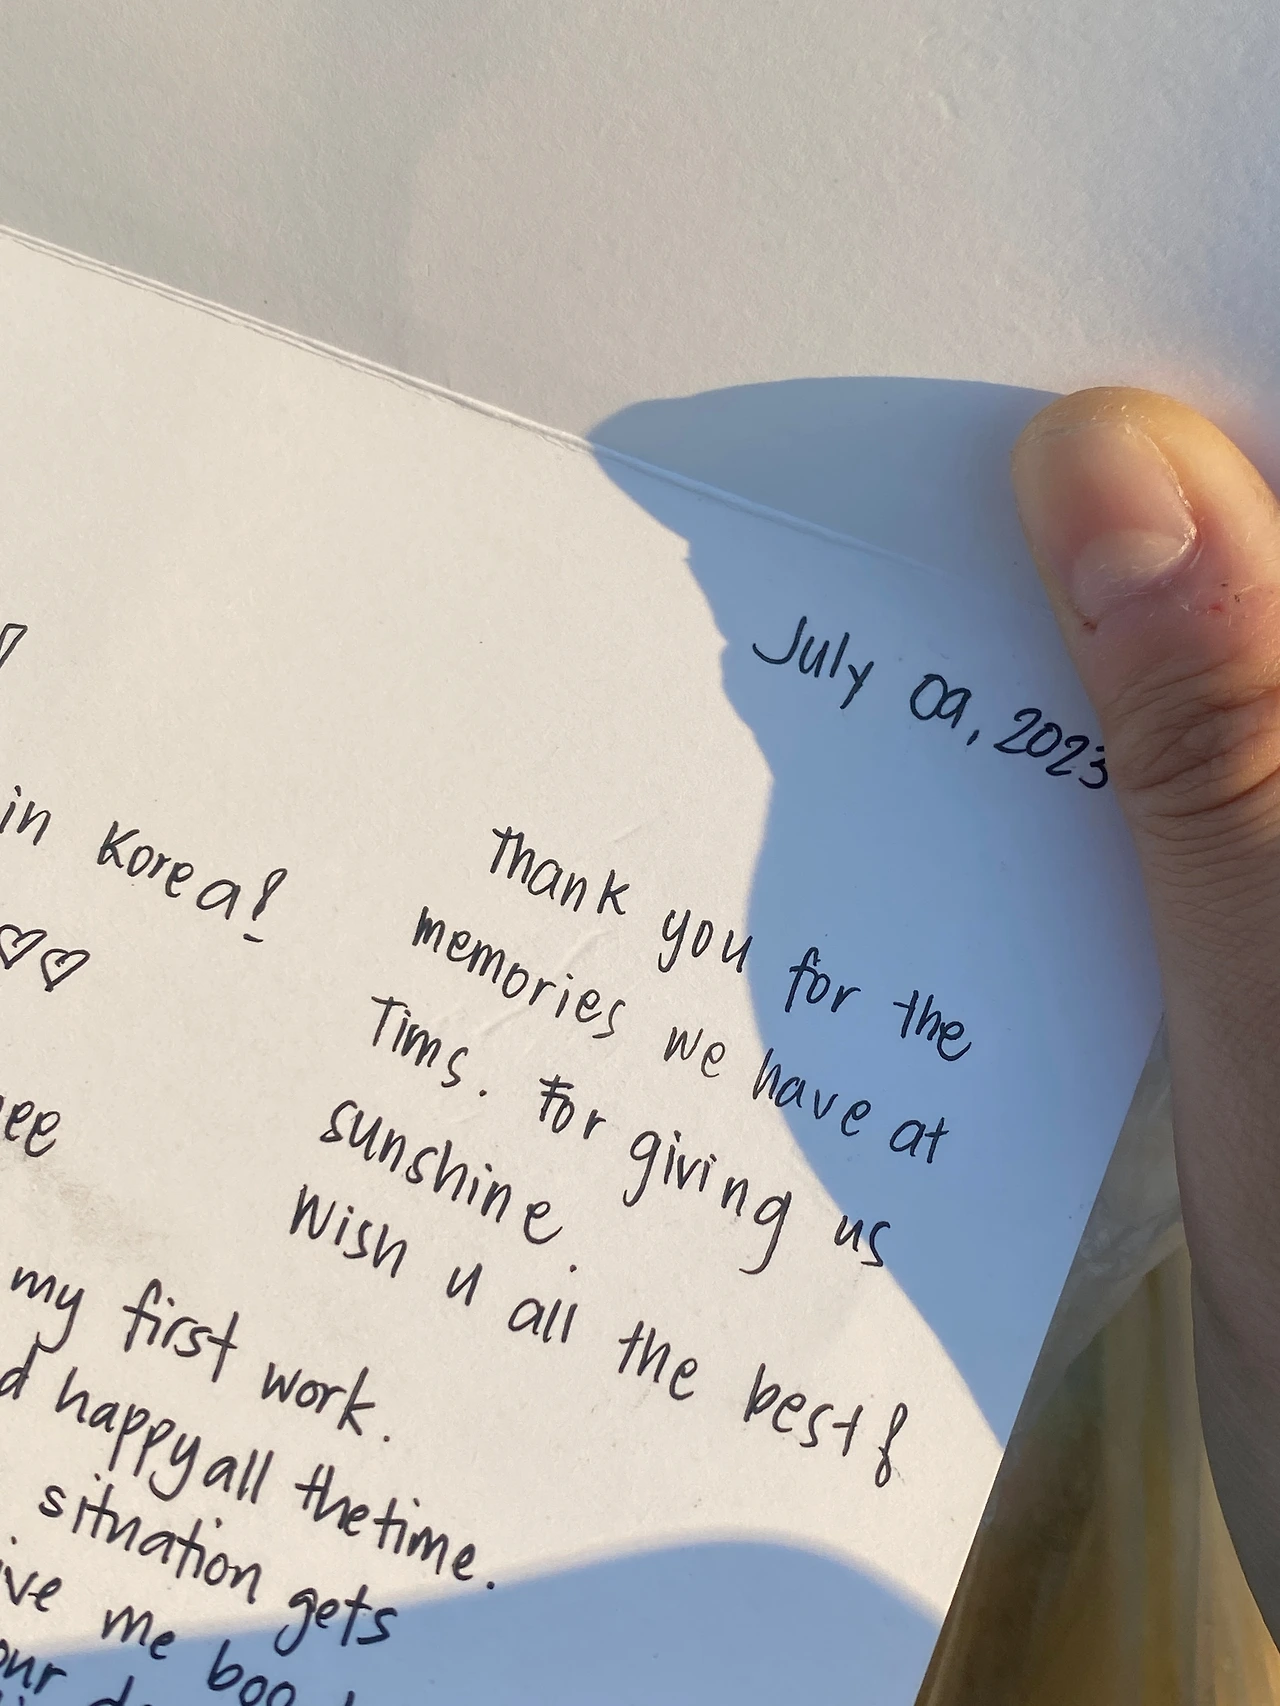 July 09, 2023
in Korea!
♡♡
Thank you for the
memories we have at
Tims. For giving us
sunshine.
Wish u all the best!
my first work.
happy all the time.
situation gets
me